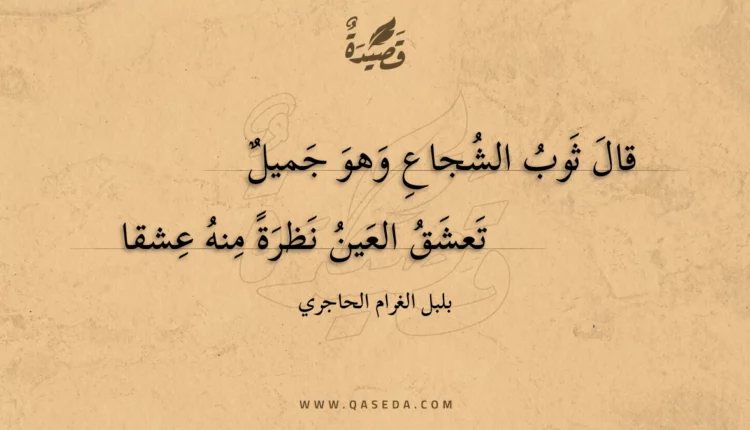 قَصِيْدَةٌ
قالَ ثَوبُ الشُجاعِ وَهوَ جَميلٌ
تَعشَقُ العَينُ نَظرَةً مِنهُ عِشقا
بلبل الغرام الحاجري
WWW.QASEDA.COM